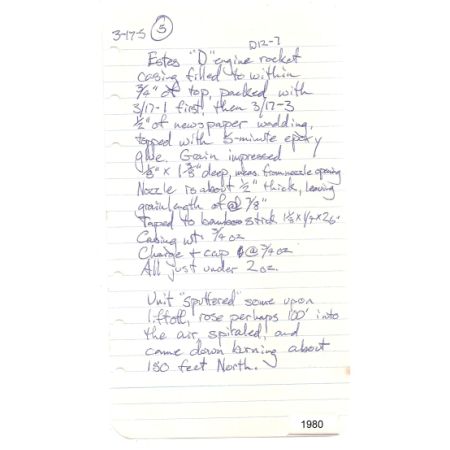 3-17-5 (5)
D12-7
Estes "D" engine rocket
casing filled to within
3/4" of top, packed with
3/17-1 first, then 3/17-3
1/2" of newspaper wadding,
topped with 5-minute epoxy
glue. Grain impressed
1 3/8" deep, meas. from nozzle opening
Nozzle is about 1/2" thick, leaving
grain length of @ 7/8"
Taped to bamboo stick
Casing wt. 3/4 oz
Charge + cap @ 3/4 oz
All just under 2 oz.
Unit "sputtered" some upon
liftoff, rose perhaps 100' into
the air, spiraled, and
came down burning about
150 feet North.
1980